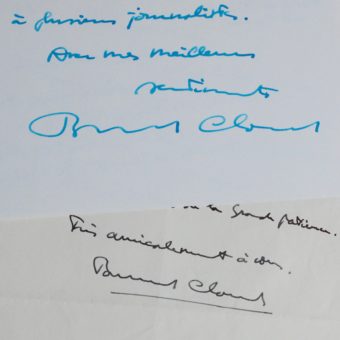 à plusieurs journalistes.
Avec mes meilleurs
sentiments
Bernard Clavel
sa grande patience.
Très amicalement à vous.
Bernard Clavel